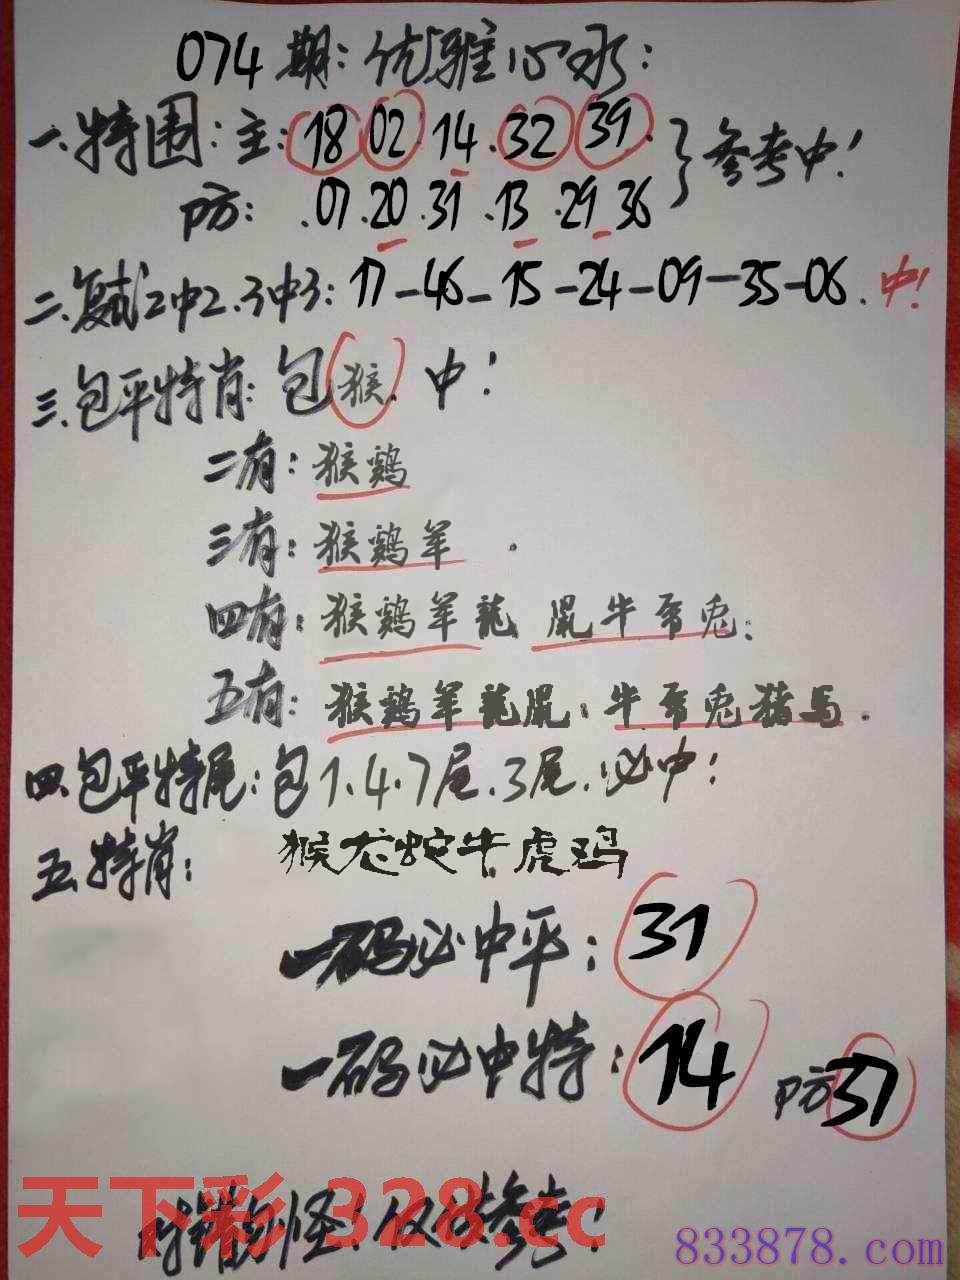 074期:优雅心水:
一.特围:主:18.02.14.32.39.}参考中!
防:.07.20.31.13.29.36
二.复式2中2.3中3:17-46-15-24-09-35-06.中!
三.包平特肖:包猴.中!
二有:猴鸡
三有:猴鸡羊.
四有:猴鸡羊龍 鼠牛帝兔:
五有:猴鸡羊龍鼠:牛帝兔猪马.
四.包平特尾:包1.4.7尾.3尾.必中!
五.特肖: 猴龙蛇牛虎鸡
一码必中平:31
一码必中特:14 防37
对错勿怪!仅供参考!
天下彩 328.cc
833878.com